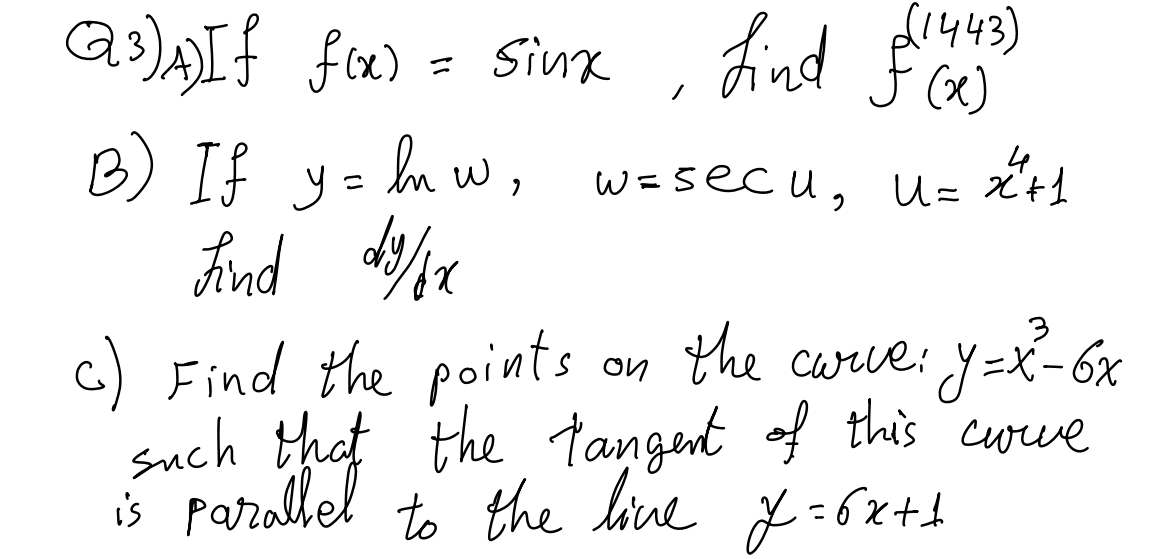 Q3)A)If f(x) = sinx , find f^(1443)(x)
B) If y = ln w, w = sec u, u = x^4+1
find dy/dx
C) Find the points on the curve: y=x^3-6x
such that the tangent of this curve
is parallel to the line y = 6x+1